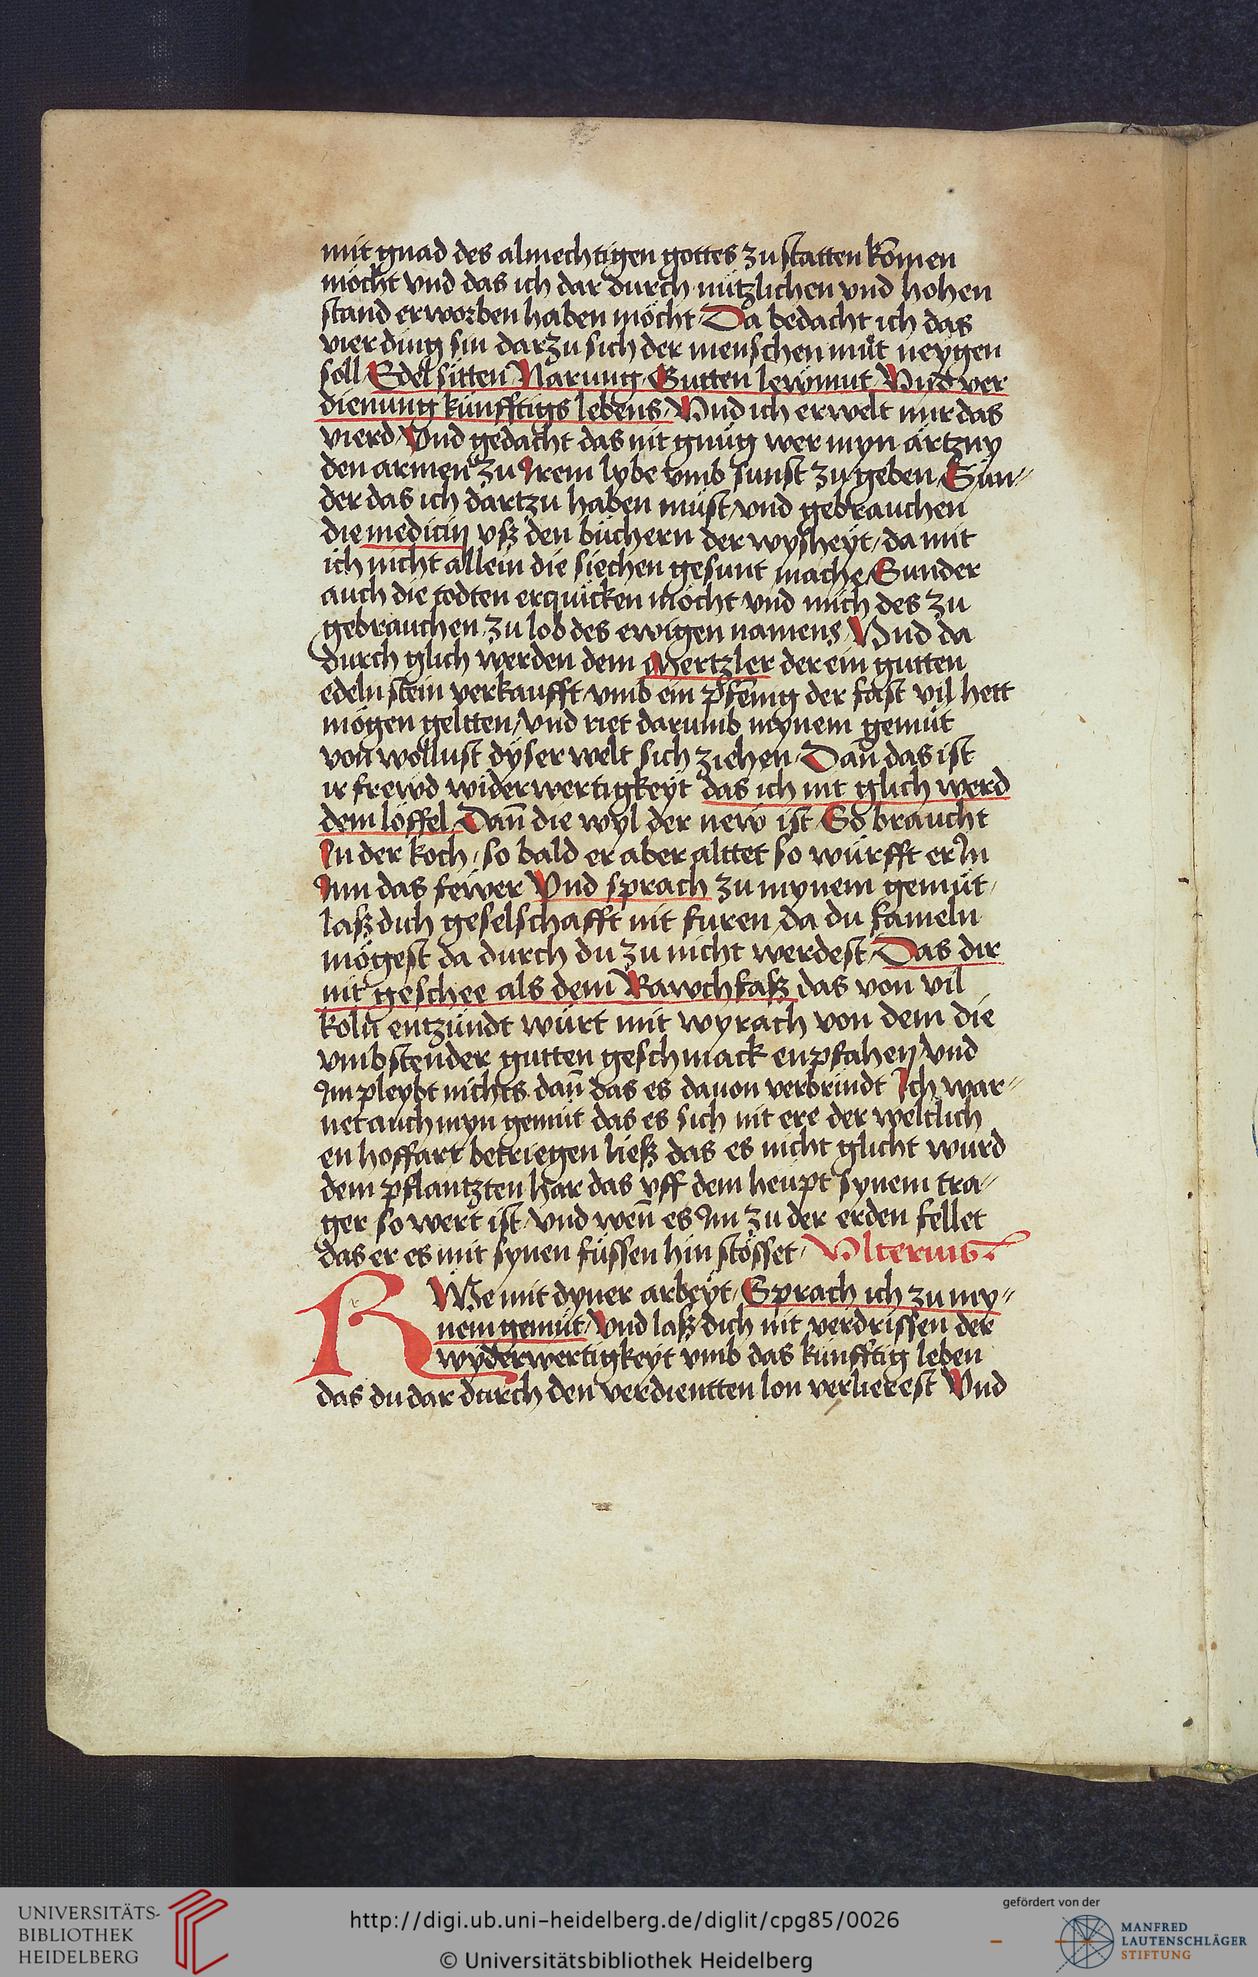 mit gnad des almechtigen gottes zu statten komen
möcht vnd das ich dar durch nützlichen vnd hohen
stand erworben haben möcht Da bedacht ich das
vier ding sin dar zu sich der menschen müt neygen
soll Edel sitten Narung Gutten lewmut Vnd ver
dienung kunfftigs lebens Vnd ich erwelt mir das
vierd Vnd gedacht das nit gnüg wer myn ärtzny
den armen zu Irem lybe vmb sunst zu geben Sun-
der das ich dartzu haben müst vnd gebrauchen
die medicin vß den büchern der wyßheyt da mit
ich nicht allein die siechen gesunt mache Sunder
auch die todten erquicken möcht vnd mich des zu
gebrauchen zu lob des ewigen namens Vnd da
durch glich werden dem Mertzler der ein gutten
edeln stein verkaufft vmb ein pfennig der fast vil hett
mögen geltten vnd riet darumb mynem gemüt
von wollust dyser welt sich ziehen Dann das ist
ir frewd widerwertigkeyt das ich nit glich werd
dem löffel Dann die wyl der new ist So braucht
In der koch so bald er aber alttet so würfft er In
Inn das fewer Vnd sprach zu mynem gemüt
laß dich geselschafft nit furen da du sameln
mögest da durch du zu nicht werdest Das dir
nit geschee als dem Rawchfaß das von vil
koln entzündt würt mit wyrach von dem die
vmbstender gutten geschmack enpfahen vnd
Im pleybt nichts dann das es dauon verbrindt Ich war-
net auch myn gemüt das es sich nit ere der weltlich
en hoffart betriegen ließ das es nicht glicht wurd
dem pflantzten har das vff dem heupt synem tra-
ger so wert ist vnd wenn es Im zu der erden fellet
das er es mit synen füssen hin stösset Vlterius
RWe mit dyner arbeyt Sprach ich zu my-
nem gemüt Vnd laß dich nit verdrissen der
wyderwertigkeyt vmb das kunfftig leben
das du dar durch den verdientten lon verlierest Vnd
UNIVERSITÄTS-
BIBLIOTHEK
HEIDELBERG
http://digi.ub.uni-heidelberg.de/diglit/cpg85/0026
© Universitätsbibliothek Heidelberg
gefördert von der
MANFRED
LAUTENSCHLÄGER
STIFTUNG